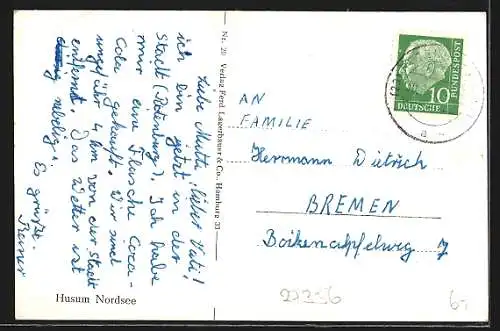 Liebe Mutti, lieber Vati!
ich bin jetzt in der
Stadt (Rotenburg). Ich habe
mir eine Flasche Coca-
Cola gekauft. Wir sind
ungefähr 4 km von der Stadt
entfernt. Das Wetter ist
neblig. Es grüßt
Reiner
Husum Nordsee
Nr. 20 Verlag Ferd. Lagerbauer & Co., Hamburg 33
AN
FAMILIE
Herrmann Dietrich
BREMEN
Boikenapfelweg 7
10
DEUTSCHE
BUNDESPOST
a
27256
6,-